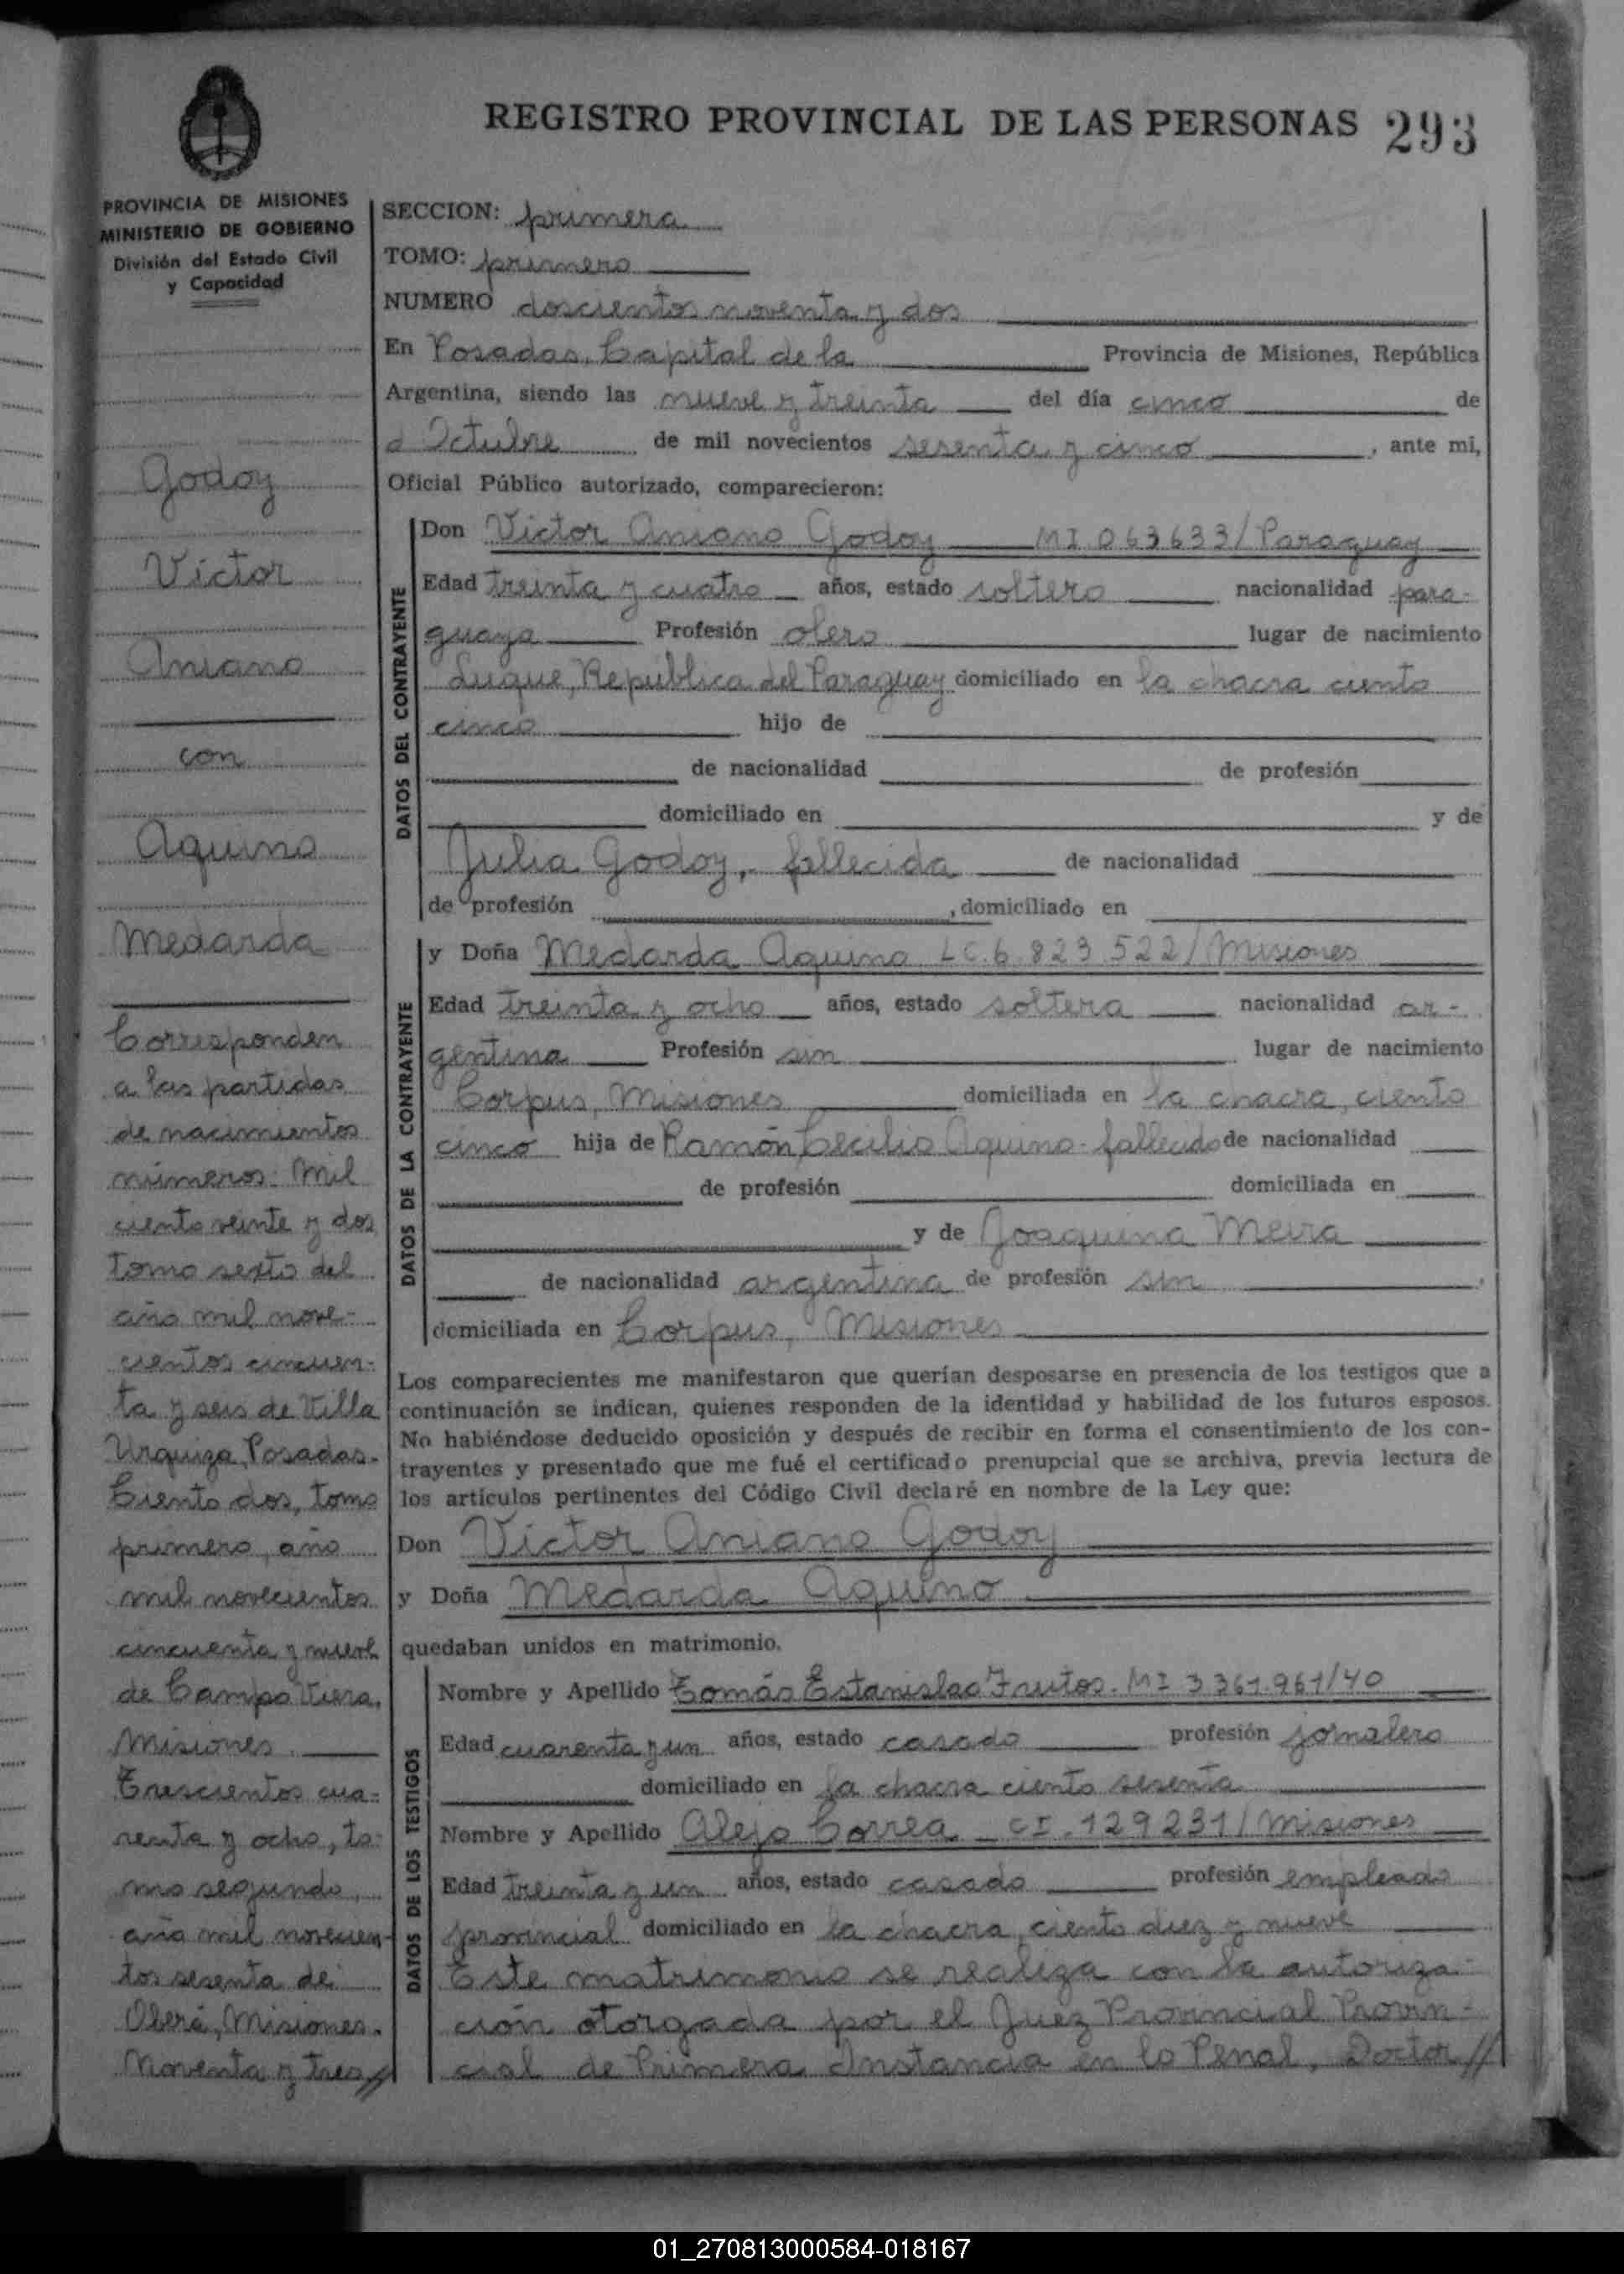 REGISTRO PROVINCIAL DE LAS PERSONAS 293
PROVINCIA DE MISIONES
MINISTERIO DE GOBIERNO
División del Estado Civil
y Capacidad
Godoy
Victor
Aniano
con
Aquino
Medarda
Corresponden
a las partidas
de nacimientos
números: Mil
ciento veinte y dos
Tomo sexto del
año mil nove-
cientos cincuen-
ta y seis de Villa
Urquiza, Posadas.
Ciento dos, tomo
primero, año
mil novecientos
cincuenta y nueve
de Campo Viera,
Misiones.
Trescientos cua-
renta y ocho, to-
mo segundo,
año mil novecien-
tos sesenta de
Oberá, Misiones.
Noventa y tres//
SECCION: primera
TOMO: primero
NUMERO doscientos noventa y dos
En Posadas, Capital de la Provincia de Misiones, República
Argentina, siendo las nueve y treinta del día cinco de
Octubre de mil novecientos sesenta y cinco, ante mi,
Oficial Público autorizado, comparecieron:
DATOS DEL CONTRAYENTE
Don Victor Aniano Godoy MI.063633/Paraguay
Edad treinta y cuatro años, estado soltero nacionalidad para-
guaya Profesión olero lugar de nacimiento
Luque, República del Paraguay domiciliado en la chacra ciento
cinco hijo de
de nacionalidad de profesión
domiciliado en y de
Julia Godoy, fallecida de nacionalidad
de profesión , domiciliado en
DATOS DE LA CONTRAYENTE
y Doña Medarda Aquino LC.6.823.522/Misiones
Edad treinta y ocho años, estado soltera nacionalidad ar-
gentina Profesión sin lugar de nacimiento
Corpus, Misiones domiciliada en la chacra, ciento
cinco hija de Ramón Cecilio Aquino-fallecido de nacionalidad
de profesión domiciliada en
y de Joaquina Meira
de nacionalidad argentina de profesión sin ,
domiciliada en Corpus, Misiones
Los comparecientes me manifestaron que querían desposarse en presencia de los testigos que a
continuación se indican, quienes responden de la identidad y habilidad de los futuros esposos.
No habiéndose deducido oposición y después de recibir en forma el consentimiento de los con-
trayentes y presentado que me fué el certificado prenupcial que se archiva, previa lectura de
los artículos pertinentes del Código Civil declaré en nombre de la Ley que:
Don Victor Aniano Godoy
y Doña Medarda Aquino
quedaban unidos en matrimonio.
DATOS DE LOS TESTIGOS
Nombre y Apellido Tomás Estanislao Frutos. MI 3.361.961/40
Edad cuarenta y un años, estado casado profesión jornalero
domiciliado en la chacra ciento sesenta
Nombre y Apellido Alejo Correa - CI.129231/Misiones
Edad treinta y un años, estado casado profesión empleado
provincial domiciliado en la chacra, ciento diez y nueve
Este matrimonio se realiza con la autoriza-
ción otorgada por el Juez Provincial Provin-
cial de Primera Instancia en lo Penal, Doctor//
01_270813000584-018167